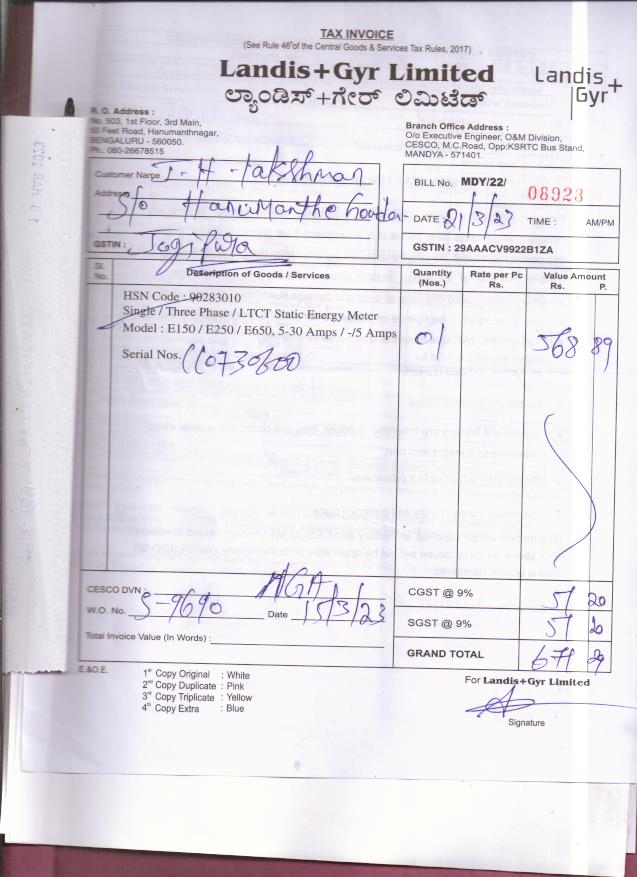 TAX INVOICE
(See Rule 46 of the Central Goods & Services Tax Rules, 2017)
Landis+Gyr Limited
ಲ್ಯಾಂಡಿಸ್+ಗೇರ್ ಲಿಮಿಟೆಡ್
Landis
Gyr+
R. O. Address :
No. 503, 1st Floor, 3rd Main,
50 Feet Road, Hanumanthnagar,
BENGALURU - 560050.
Ph.: 080-26678515
Branch Office Address :
O/o Executive Engineer, O&M Division,
CESCO, M.C.Road, Opp:KSRTC Bus Stand,
MANDYA - 571401.
Customer Name J-H-Lakshman
Address S/o Hanumanthe Gowda
GSTIN : Jogipura
BILL No. MDY/22/ 08923
DATE : 21/3/23 TIME : AM/PM
GSTIN : 29AAACV9922B1ZA
Sl. No. Description of Goods / Services Quantity (Nos.) Rate per Pc Rs. Value Amount Rs. P.
HSN Code : 90283010
Single / Three Phase / LTCT Static Energy Meter
Model : E150 / E250 / E650, 5-30 Amps / -/5 Amps 01 568 89
Serial Nos.
CESCO DVN : NGA
W.O. No. S-9690 Date 15/3/23
Total Invoice Value (In Words) :
CGST @ 9% 51 20
SGST @ 9% 51 20
GRAND TOTAL 671 29
E.&O.E.
1st Copy Original : White
2nd Copy Duplicate : Pink
3rd Copy Triplicate : Yellow
4th Copy Extra : Blue
For Landis+Gyr Limited
Signature